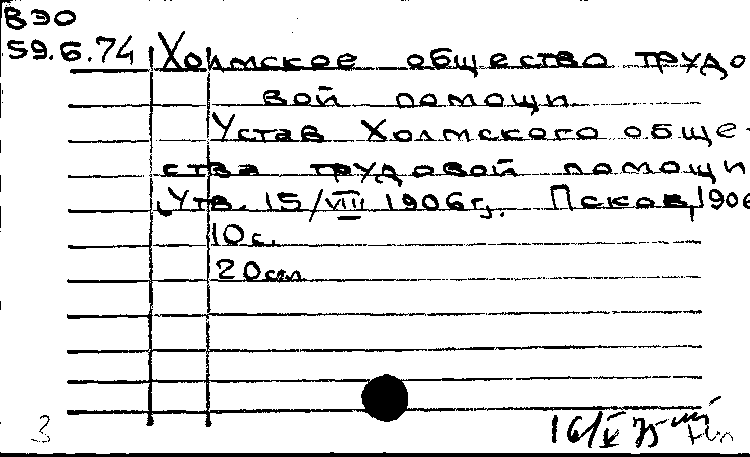 ВЭО
59.6.74 Холмское общество трудо
вой помощи.
Устав Холмского обще-
ства трудовой помощи
Утв. 15/VIII 1906 г. Псков, 1906
10 с.
20 см
3
16/V 75